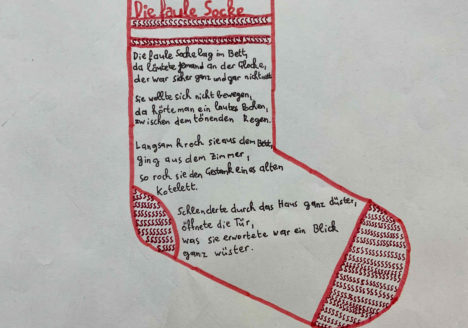 Die faule Socke
Die faule Socke lag im Bett,
da läutete jemand an der Glocke,
der war sicher ganz und gar nicht nett.
Sie wollte sich nicht bewegen,
da hörte man ein lautes Pochen,
zwischen dem tönenden Regen.
Langsam kroch sie aus dem Bett,
ging aus dem Zimmer,
so roch sie den Gestank eines alten
Kotelett.
Schlenderte durch das Haus ganz düster,
öffnete die Tür,
was sie erwortete war ein Blick
ganz wüster.